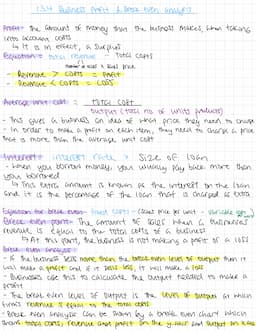 1.3.4 Business Profit & Break Even analysis
Profit - the amount of money that the business makes, when taking
into account costs
↳ it is in effect, a surplus
Equation = total revenue - total costs
number of sales x sales price
- Revenue > costs = Profit
- Revenue < costs = Loss
Average unit cost = total cost
output (total no of units produced)
- This gives a business an idea of what price they need to charge
- In order to make a profit on each item, they need to charge a price
that is more than the average unit cost
Interest = interest rate x size of loan
- when you borrow money, you usually pay back more than
you borrowed
↳ This extra amount is known as the interest on the loan
and it is the percentage of the loan that is charged as extra
Equation for break even = fixed costs ÷ (sales price per unit - variable
Break even point - The amount of sales when a businesses
revenue, is equal to the total costs of a business
↳ At this point, the business is not making a profit or a loss
Break even analysis
- If the business sells more than the break even level of output then it
will make a profit and if it sells less, it will make a loss
- Businesses use this to calculate the output needed to make a
profit
- The break even level of output is the level of output at which
firms revenue is equal to the total costs
- Break even analysis can be shown by a break even chart which
shows total costs, revenue and profit on the y axis and output on x axis